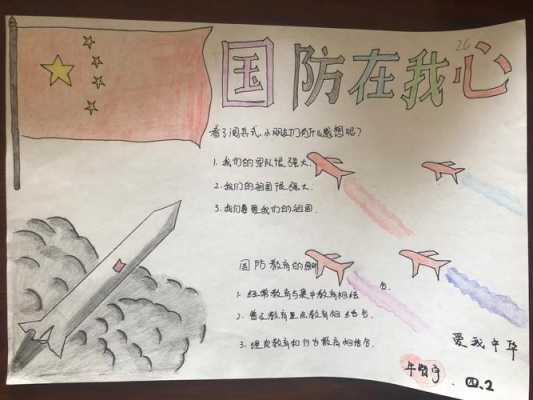 国防在我心
26
看了阅兵式,小朋友们有什么感想呢?
1.我们的军队很强大.
2.我们的祖国很强大.
3.我们要爱我们的祖国.
国防教育的原则
1.经常教育与集中教育相结合.
2.普及教育与重点教育相结合.
3.理论教育和行为教育相结合.
爱我中华
牛
四.2